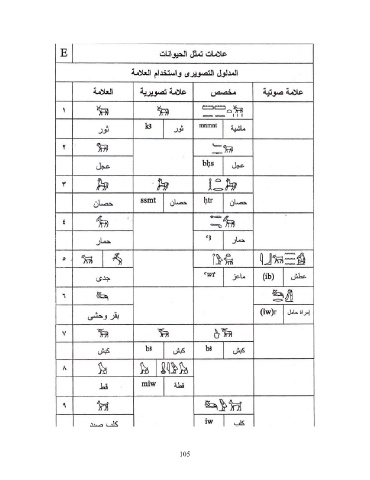 علامات تمثل الحيوانات E
المدلول التصويرى واستخدام العلامة
العلامة علامة تصويرية مخصص علامة صوتية
١
ثور ثور k3 ماشية mnmnt
٢
عجل عجل bḥs
٣
حصان حصان ssmt حصان ḥtr
٤
حمار حمار ꜥ3
٥
جدى ماعز ꜥwt عطش (ib)
٦
بقر وحشى إمرأة حامل (iw)r
٧
كبش كبش b3 كبش b3
٨
قط قطة miw
٩
كلب صيد كلب iw
105